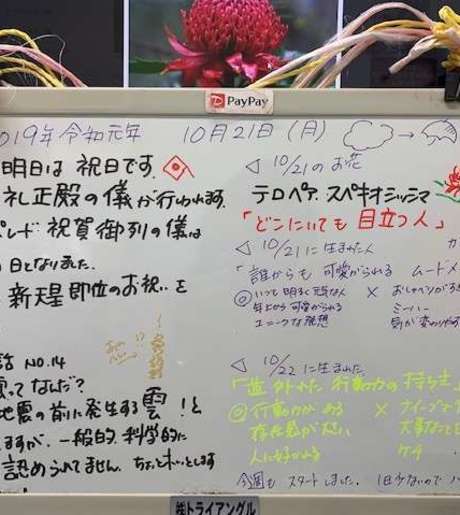 PayPay
019年 令和元年 10月21日(月) →
明日は 祝日です。
礼正殿の儀が行われます。
パレード 祝賀御列の儀は
日となりました。
新天皇即位のお祝いを
話 NO.14
雲ってなんだ?
地震の前に発生する雲!と
ますが、一般的、科学的に
認められてません。
◁ 10/21 のお花
テロペア. スペキオシッシマ
「どこにいても 目立つ人」
◁ 10/21 に生まれた人 カ
「誰からも 可愛がられる ムードメ
◎いつも明るく元気な人 × おしゃべりがす
年上から可愛がられる ミーハー
ユニークな発想 気が変わりやす
◁ 10/22 に生まれた
行動力の持ち主
◎行動力がある × ナイーブ
存在感が 大事なこと
人に好かれる ケチ
今週も スタートしました。 1日少ないので
㈱トライアングル